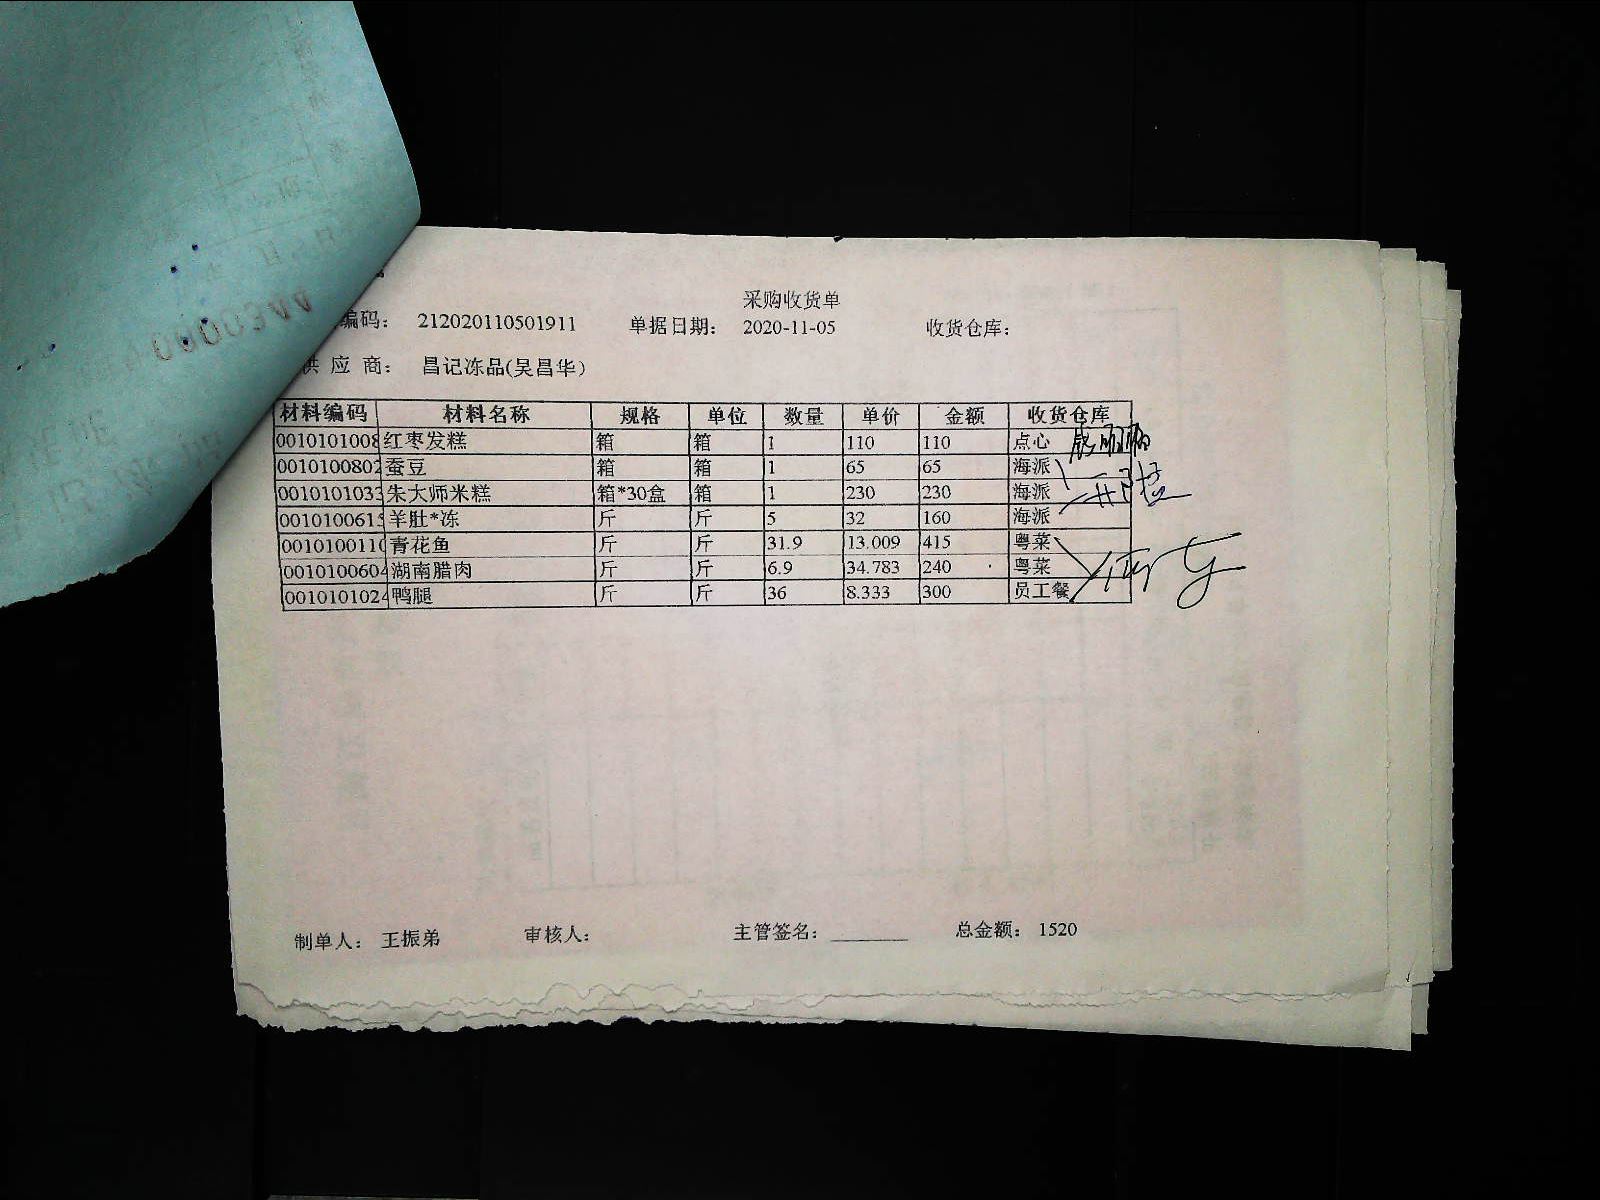 采购收货单
编码： 212020110501911 单据日期： 2020-11-05 收货仓库：
供 应 商： 昌记冻品(吴昌华)
材料编码 材料名称 规格 单位 数量 单价 金额 收货仓库
0010101008 红枣发糕 箱 箱 1 110 110 点心
0010100802 蚕豆 箱 箱 1 65 65 海派
0010101033 朱大师米糕 箱*30盒 箱 1 230 230 海派
0010100615 羊肚*冻 斤 斤 5 32 160 海派
0010100110 青花鱼 斤 斤 31.9 13.009 415 粤菜
0010100604 湖南腊肉 斤 斤 6.9 34.783 240 粤菜
0010101024 鸭腿 斤 斤 36 8.333 300 员工餐
制单人： 王振弟 审核人： 主管签名： 总金额： 1520